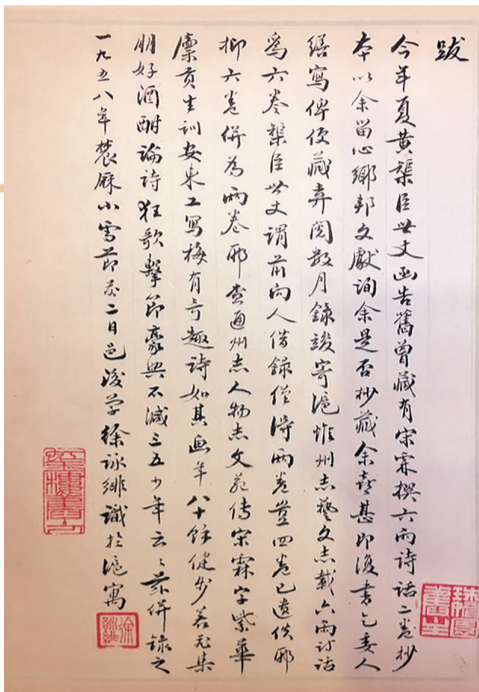 跋
今年夏黄櫱臣世丈函告舊曾藏有宋霖撰六雨詩話二卷抄
本以余留心鄉邦文獻詢余是否抄藏余喜甚即復書乞委人
繕寫俾便藏弆閱數月錄竣寄滬惟州志藝文志載六雨詩話
為六卷櫱臣世丈謂前向人借錄僅得兩卷豈四卷已遺佚耶
抑六卷併為兩卷耶查通州志人物志文苑傳宋霖字紫華
廩貢生訓安東工寫梅有奇趣詩如其画年八十餘健步若飛集
朋好酒酣論詩狂歌擊節豪興不減三五少年云云茲併錄之
一九五八年農厤小雪節㳀二日邑後學徐詠緋識於滬寓